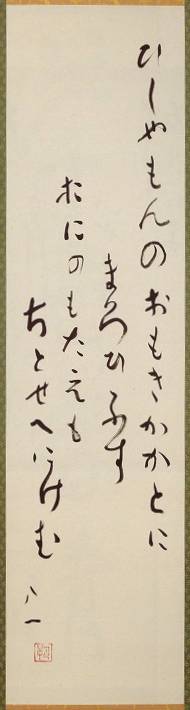 ひしやもんのおもきかかとに
まろひふす
おにのもたえも
ちとせへにけむ
八一